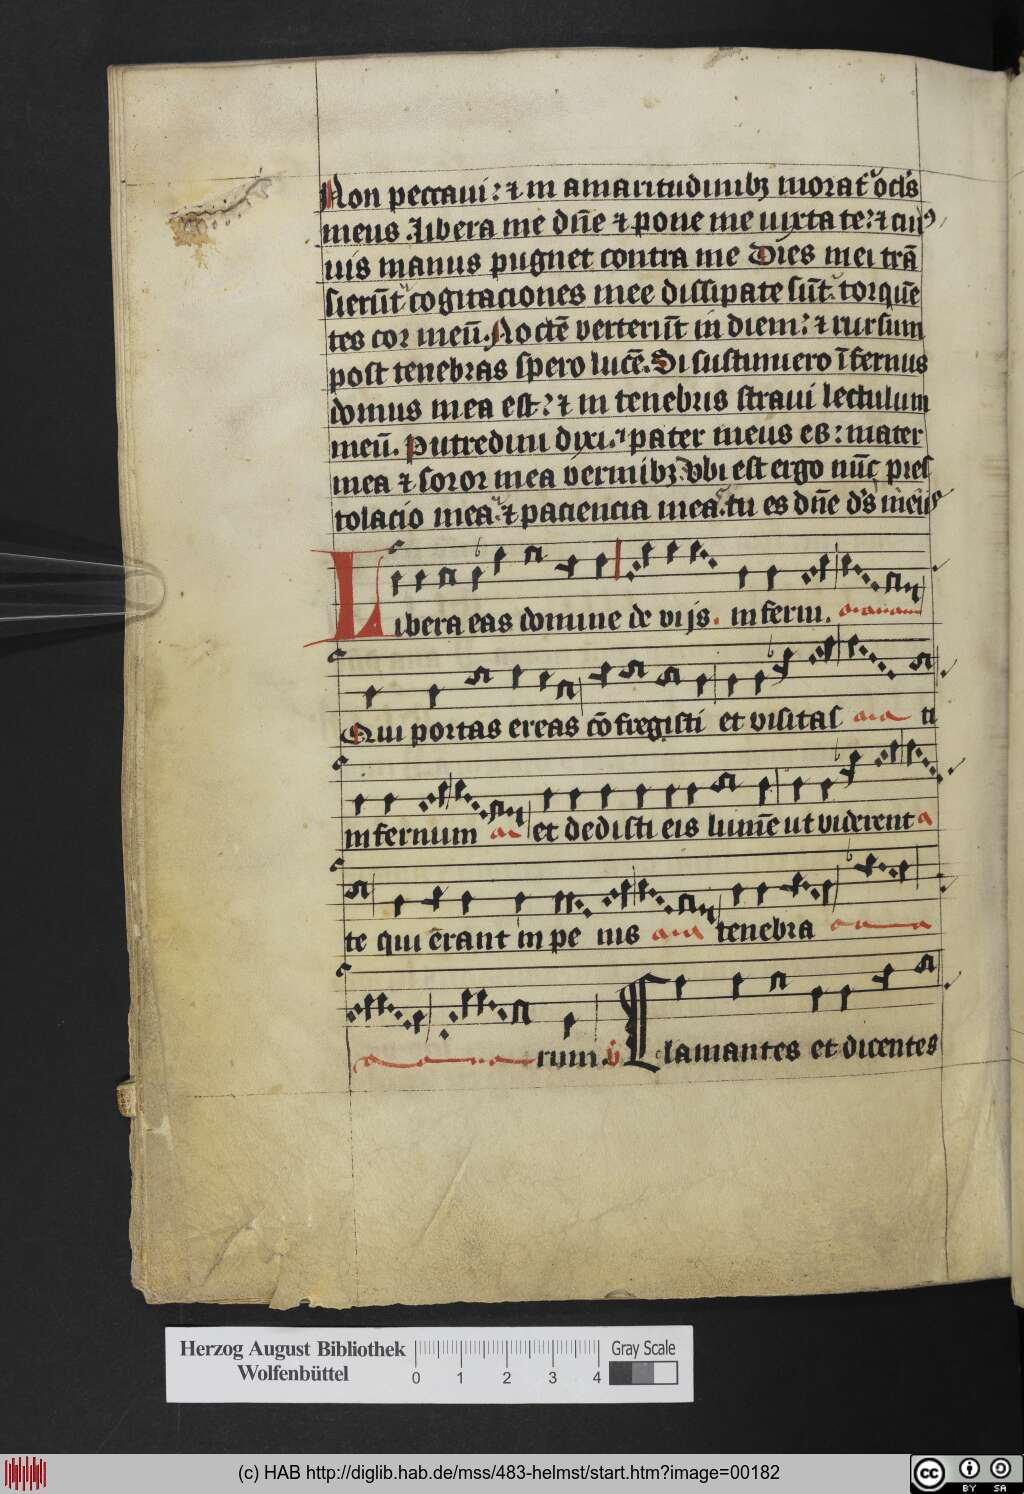 Non peccaui: ⁊ in amaritudinibꝫ morat᷑ ocl̓s
meus. Libera me dn̄e ⁊ pone me iuxta te: ⁊ cui⁹
uis manus pugnet contra me Dies mei trā
sierūt cogitaciones mee dissipate sūt. torquē
tes cor meū. Noctē verterūt in diem: ⁊ rursum
post tenebras spero lucē. Si sustinuero īfernus
domus mea est: ⁊ in tenebris straui lectulum
meū. Putredini dixi. pater meus es: mater
mea ⁊ soror mea vermibꝫ. Vbi est ergo nūc pres
tolacio mea. ⁊ paciencia mea. tu es dn̄e ds̄ meus
Libera eas domine de vijs. inferni.
Qui portas ereas cōfregisti et visitas ti
infernum et dedisti eis lumē ut viderent
te qui erant in pe nis tenebra
rum. v̓ Clamantes et dicentes
Herzog August Bibliothek
Wolfenbüttel
0 1 2 3 4
Gray Scale
(c) HAB http://diglib.hab.de/mss/483-helmst/start.htm?image=00182
cc BY SA